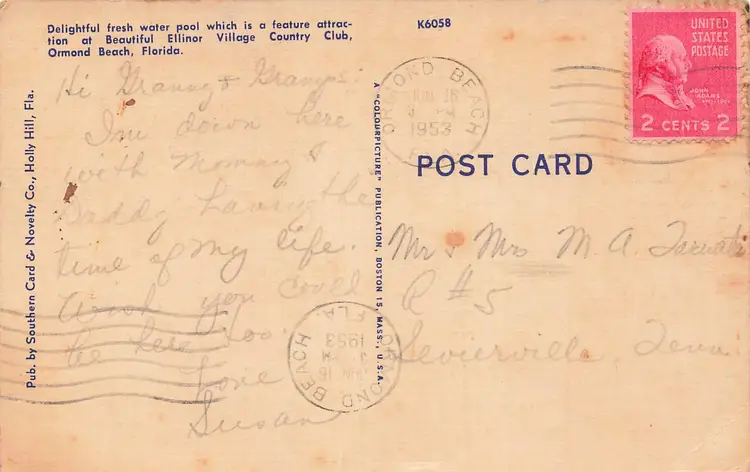 Delightful fresh water pool which is a feature attrac-
tion at Beautiful Ellinor Village Country Club,
Ormond Beach, Florida.
K6058
Hi Granny & Gramps:
I'm down here
with Mommy &
Daddy having the
time of my life.
Wish you could
be here too.
Love
Susan
Pub. by Southern Card & Novelty Co., Holly Hill, Fla.
A "COLOURPICTURE" PUBLICATION, BOSTON 15, MASS., U.S.A.
ORMOND BEACH
JUN 16
1953
FLA.
UNITED
STATES
POSTAGE
JOHN
ADAMS
2 CENTS 2
POST CARD
Mr & Mrs M. A.
R #5
Sevierville, Tenn
ORMOND BEACH
JUN 16
1953
FLA.